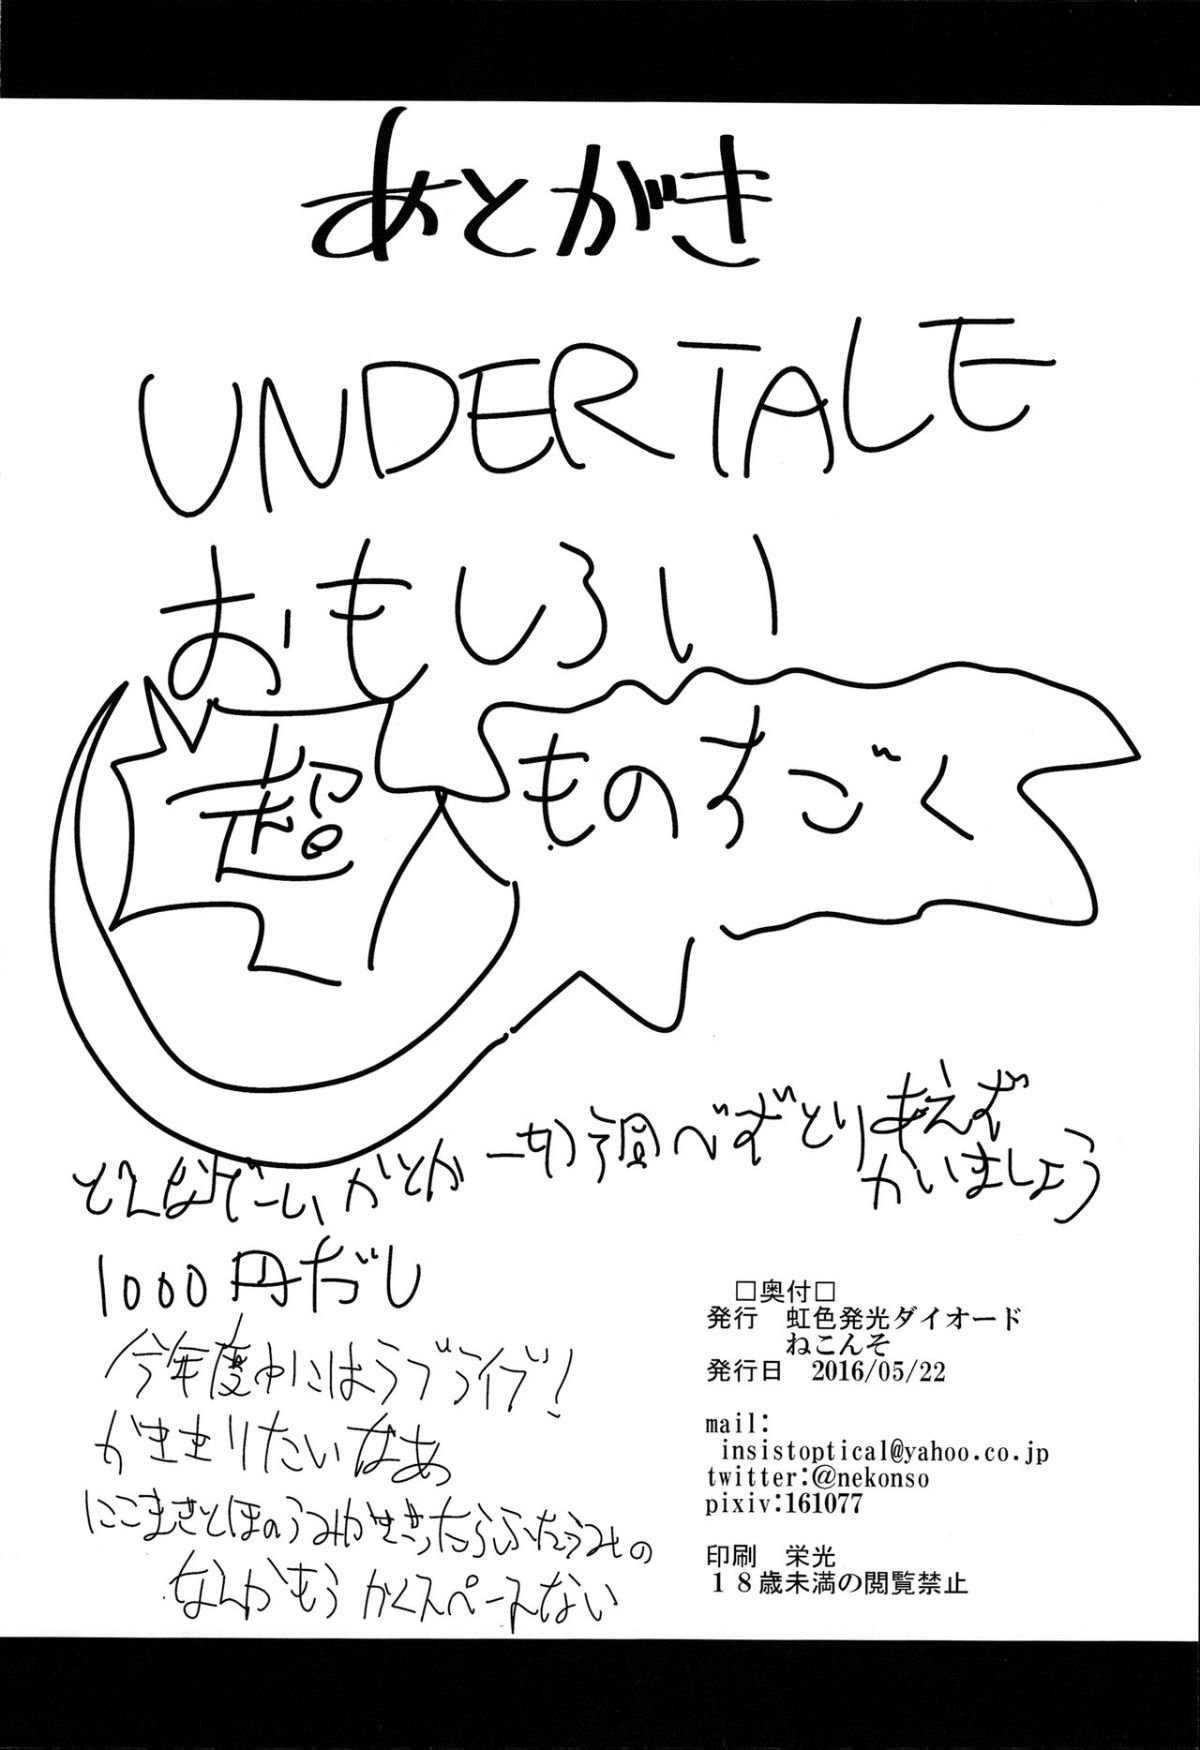 あとがき
UNDERTALE
おもしろい
超
ものすごく
どんなげーむかとか一切調べずとりあえず
かいましょう
1000円だし
今年度中にはラブライブ!
がききりたいなあ
にこまきとほのうみがきたらふたうみの
なんかもうかくスペースない
□奥付□
発行　虹色発光ダイオード
ねこんそ
発行日　2016/05/22
mail:
insistoptical@yahoo.co.jp
twitter:@nekonso
pixiv:161077
印刷　栄光
18歳未満の閲覧禁止